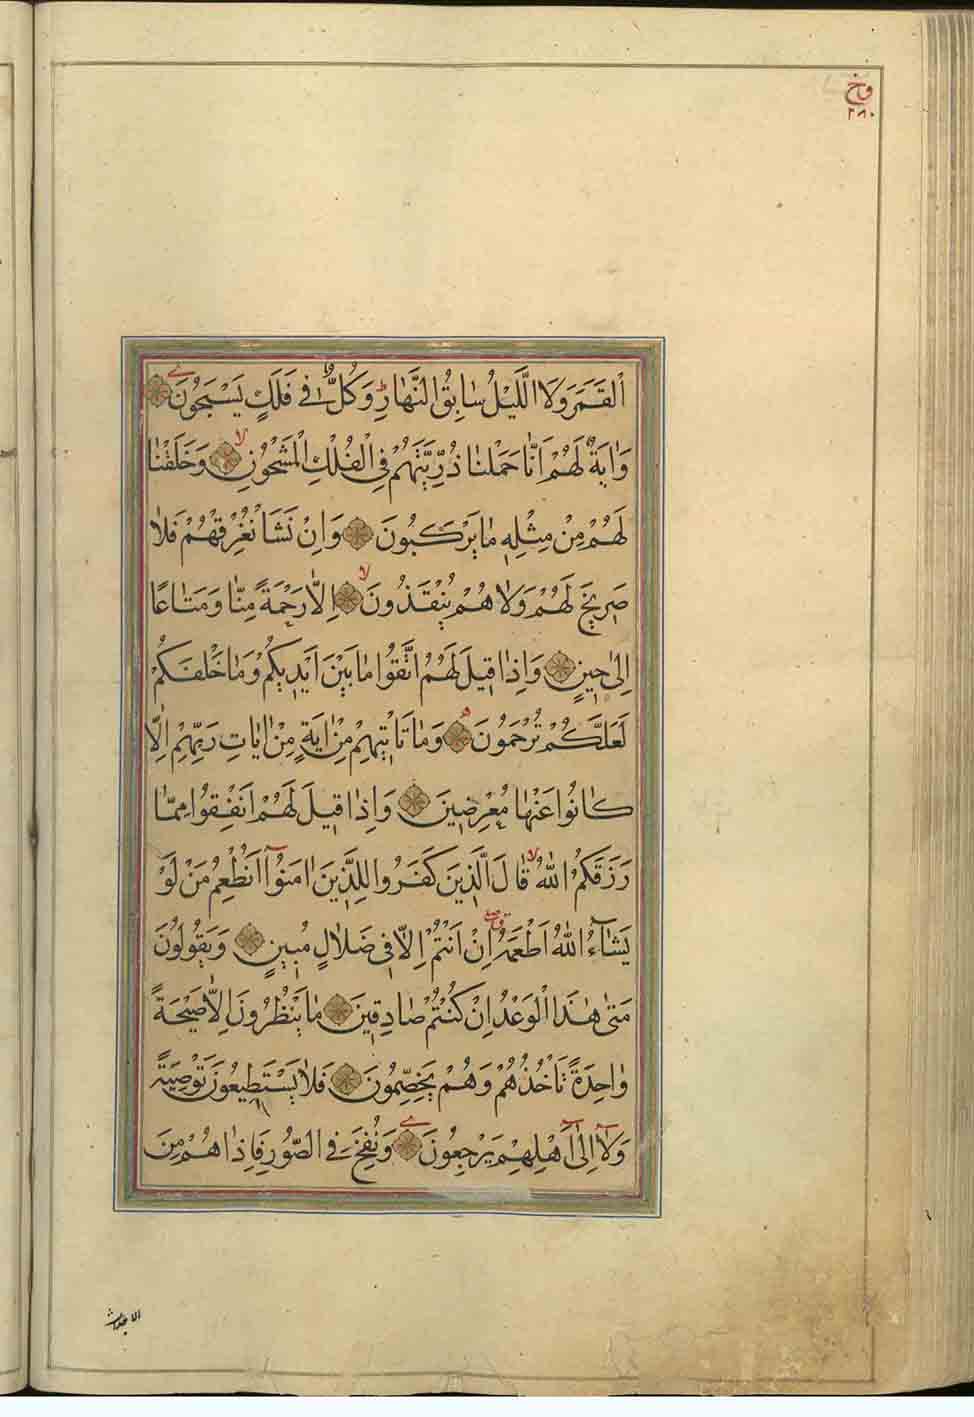 ۲۸۰
اْلقَمَرَ وَلَا الَّيْلُ سَابِقُ النَّهَارِ وَكُلٌّ فِي فَلَكٍ يَسْبَحُونَ
وَاٰيَةٌ لَهُمْ اَنَّا حَمَلْنَا ذُرِّيَّتَهُمْ فِي الْفُلْكِ الْمَشْحُونِ وَخَلَقْنَا
لَهُمْ مِنْ مِثْلِهٖ مَا يَرْكَبُونَ وَاِنْ نَشَاْ نُغْرِقْهُمْ فَلَا
صَرِيخَ لَهُمْ وَلَا هُمْ يُنْقَذُونَ اِلَّا رَحْمَةً مِنَّا وَمَتَاعًا
اِلٰى حِينٍ وَاِذَا قِيلَ لَهُمُ اتَّقُوا مَا بَيْنَ اَيْدِيكُمْ وَمَا خَلْفَكُمْ
لَعَلَّكُمْ تُرْحَمُونَ وَمَا تَاْتِيهِمْ مِنْ اٰيَةٍ مِنْ اٰيَاتِ رَبِّهِمْ اِلَّا
كَانُوا عَنْهَا مُعْرِضِينَ وَاِذَا قِيلَ لَهُمْ اَنْفِقُوا مِمَّا
رَزَقَكُمُ اللّٰهُ قَالَ الَّذِينَ كَفَرُوا لِلَّذِينَ اٰمَنُوٓا اَنُطْعِمُ مَنْ لَوْ
يَشَآءُ اللّٰهُ اَطْعَمَهُ اِنْ اَنْتُمْ اِلَّا فِي ضَلَالٍ مُبِينٍ وَيَقُولُونَ
مَتٰى هٰذَا الْوَعْدُ اِنْ كُنْتُمْ صَادِقِينَ مَا يَنْظُرُونَ اِلَّا صَيْحَةً
وَاحِدَةً تَاْخُذُهُمْ وَهُمْ يَخِصِّمُونَ فَلَا يَسْتَطِيعُونَ تَوْصِيَةً
وَلَآ اِلٰٓى اَهْلِهِمْ يَرْجِعُونَ وَنُفِخَ فِي الصُّورِ فَاِذَا هُمْ مِنَ
الاجداث